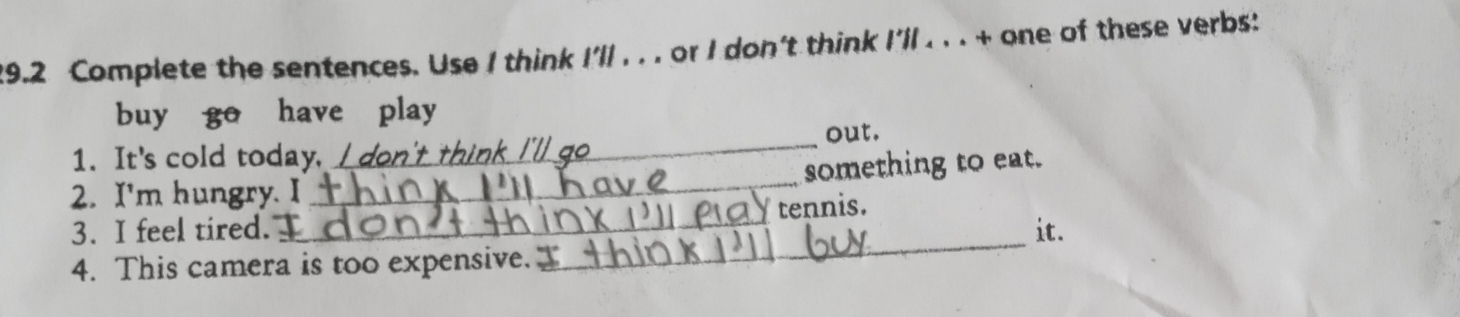 29.2 Complete the sentences. Use I think I'll . . . or I don't think I'll . . . + one of these verbs:
buy go have play
1. It's cold today. I don't think I'll go out.
2. I'm hungry. I think I'll have something to eat.
3. I feel tired. I don't think I'll play tennis.
4. This camera is too expensive. I think I'll buy it.